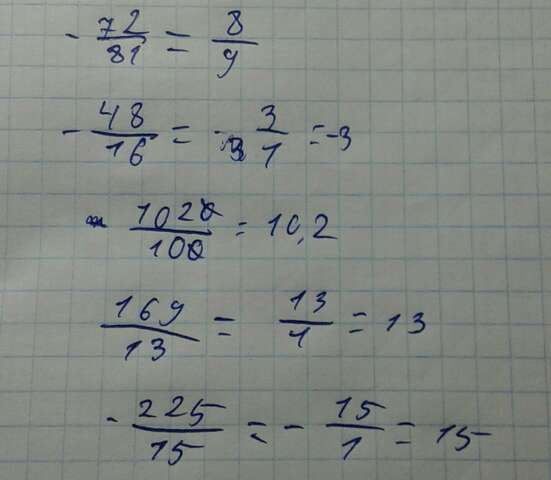 - 72/81 = 8/9
- 48/16 = - 3/1 = -3
1020/100 = 10,2
169/13 = 13/1 = 13
- 225/15 = - 15/1 = 15